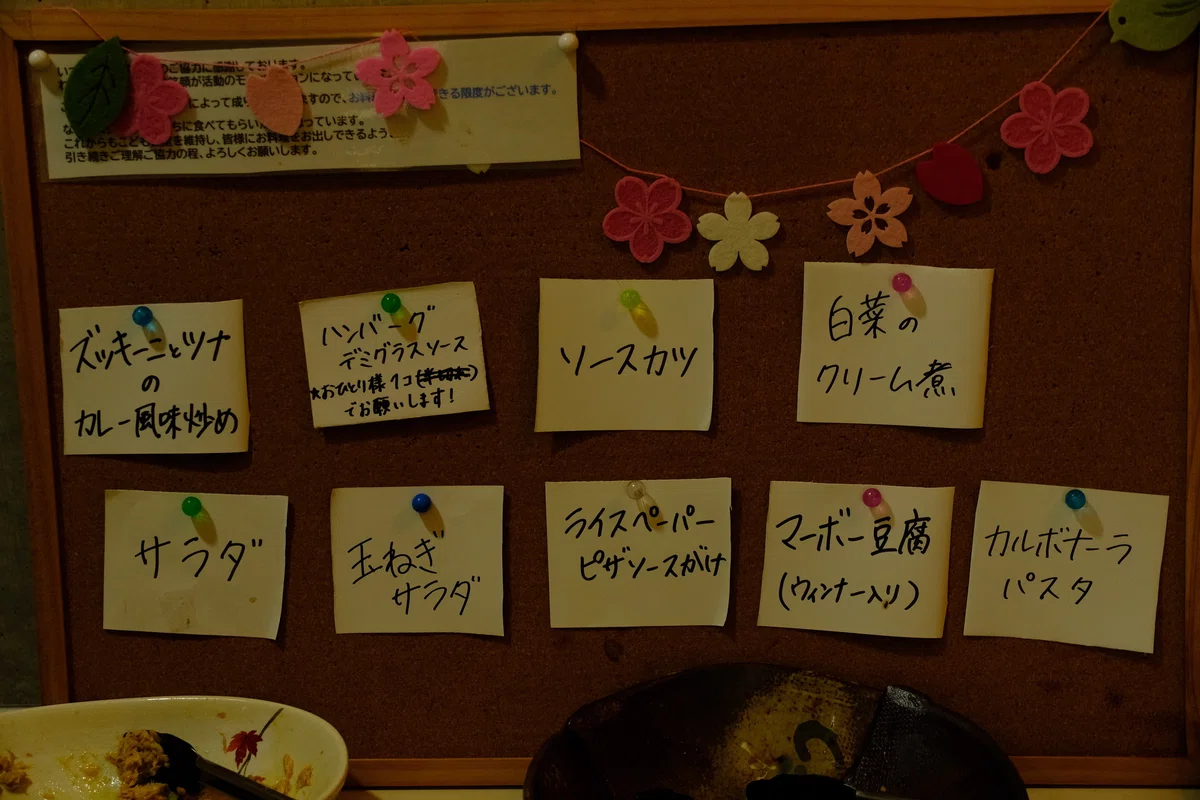 のご協力に感謝しております。
が活動のモ
によって成り
ますので、お料
きる限度がございます。
ちに食べてもらい
っています。
これからもこども
を維持し、皆様にお料理をお出しできるよう、
引き続きご理解ご協力の程、よろしくお願いします。
ズッキーニとツナ
の
カレー風味炒め
ハンバーグ
デミグラスソース
★おひとり様1コ
でお願いします!
ソースカツ
白菜の
クリーム煮
サラダ
玉ねぎ
サラダ
ライスペーパー
ピザソースがけ
マーボー豆腐
(ウィンナー入り)
カルボナーラ
パスタ